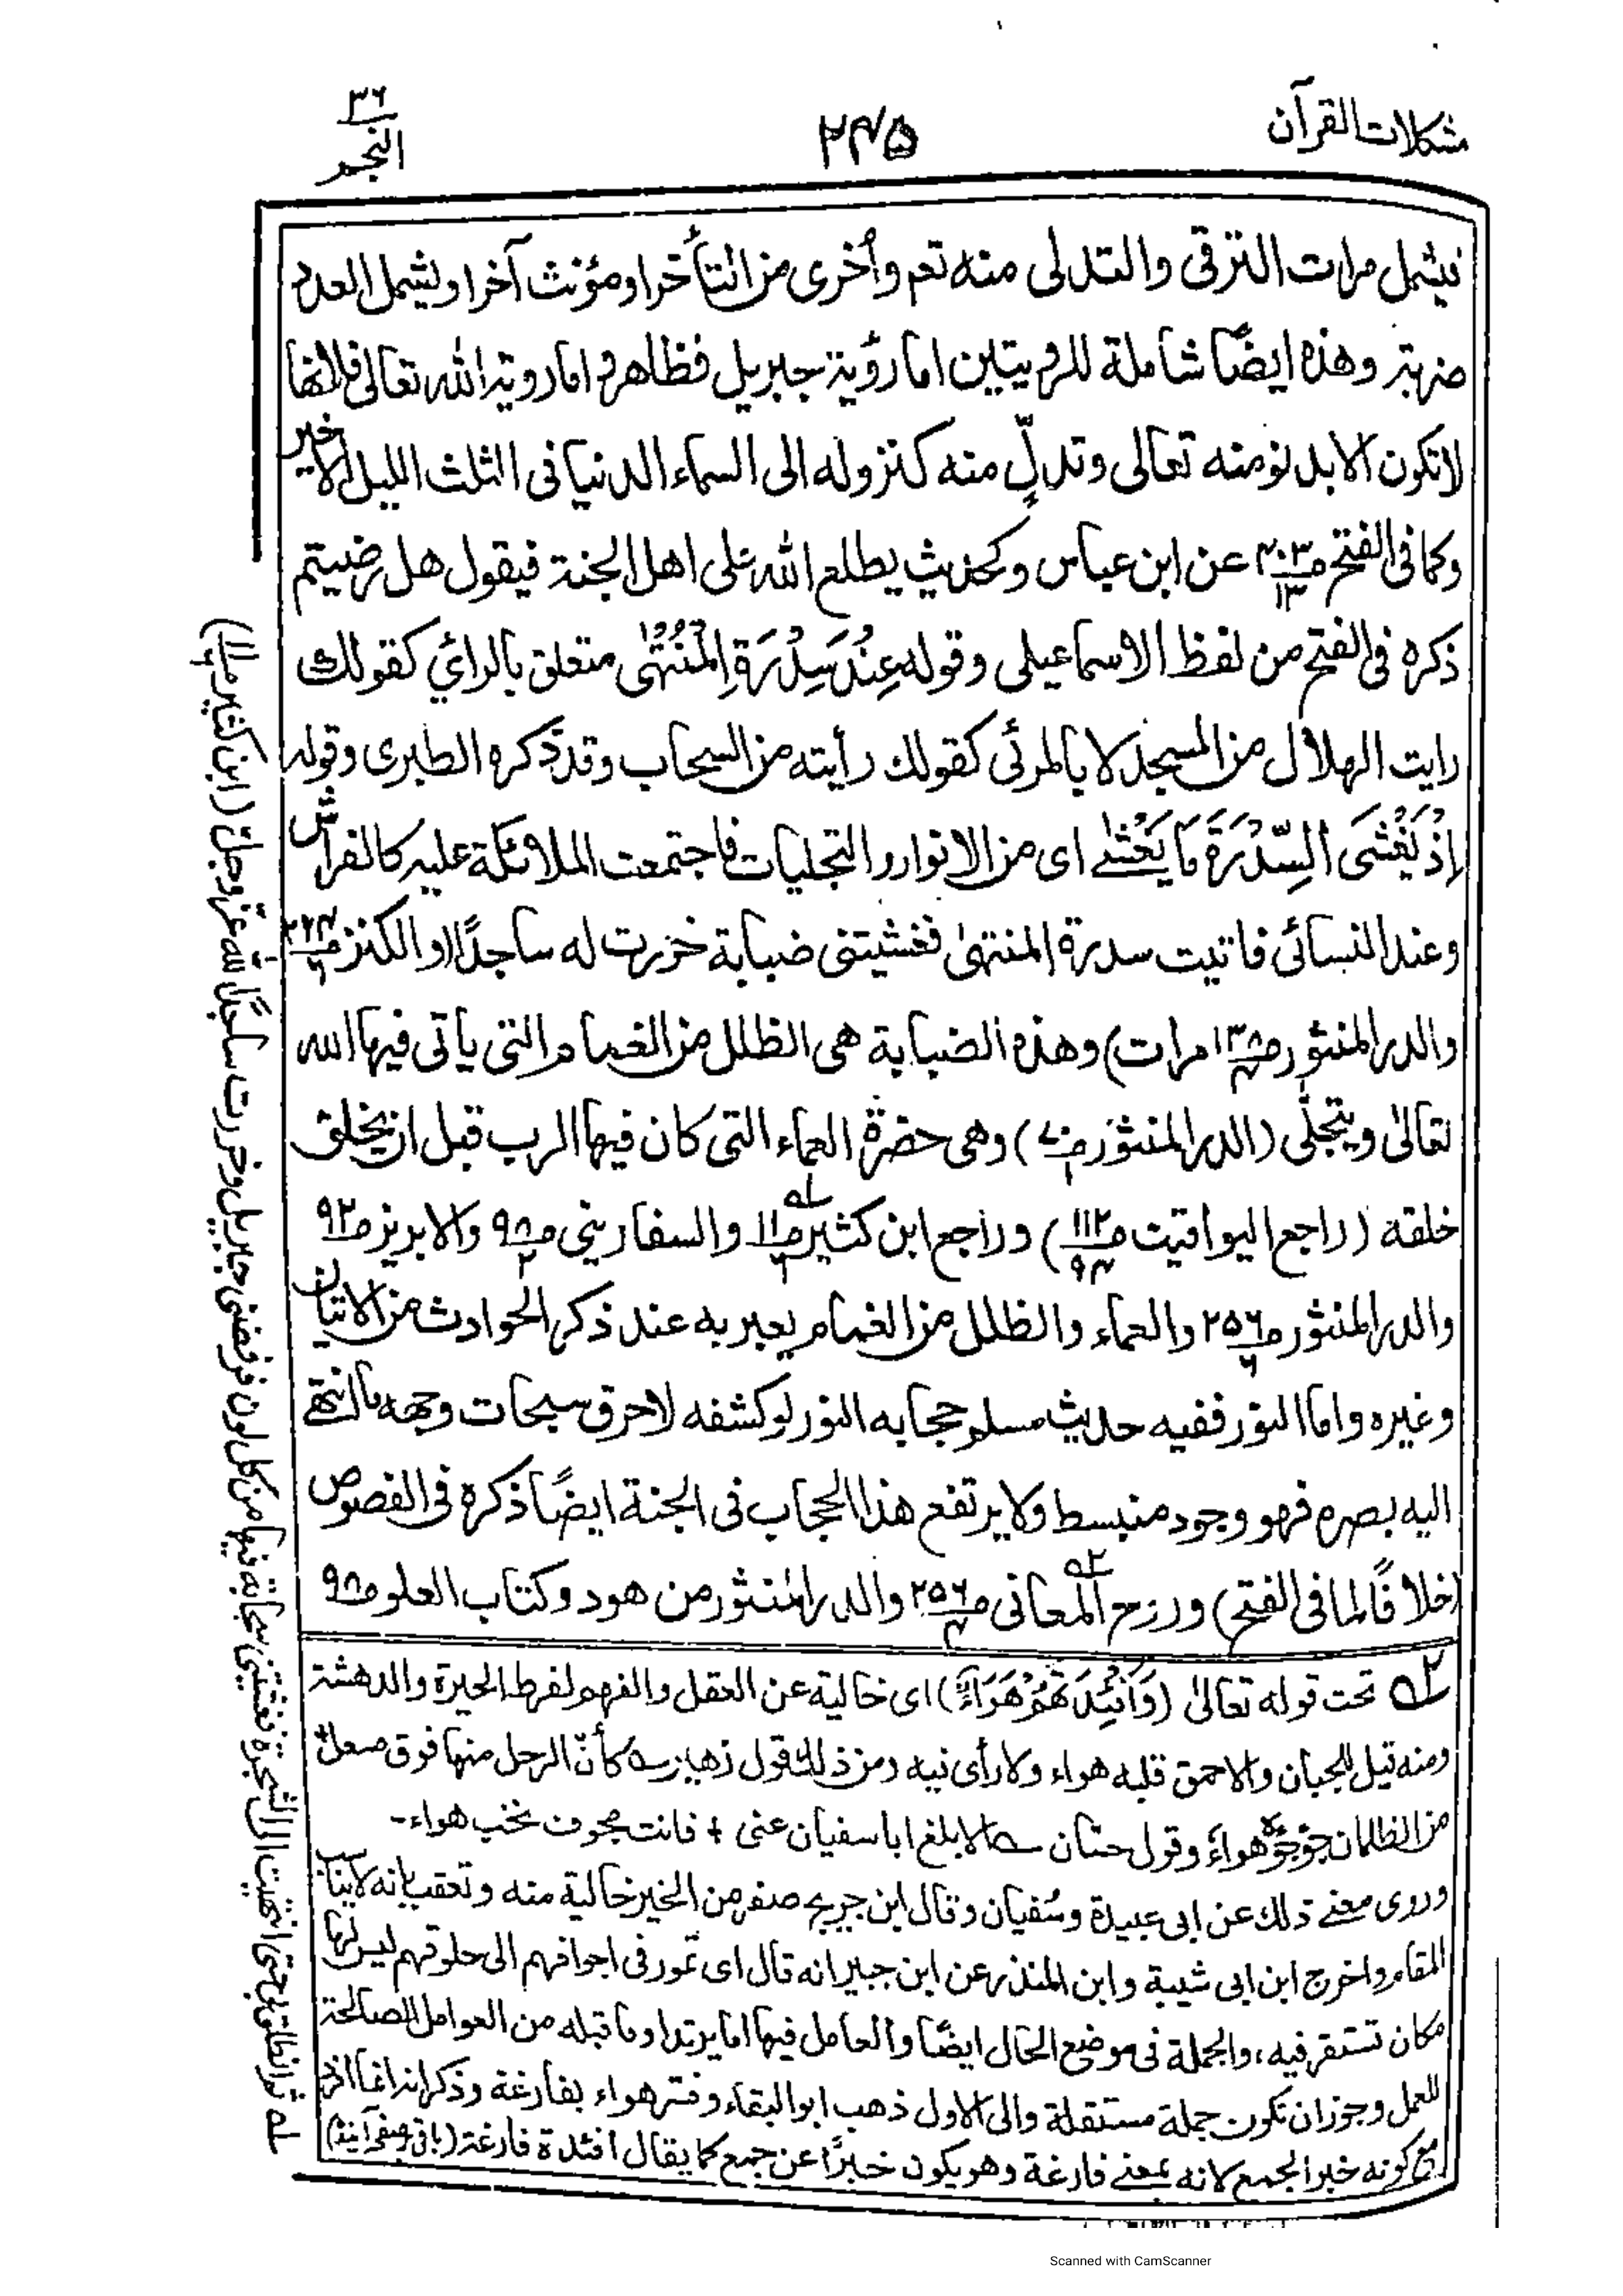 مشكلات القرآن
۲۴۵
النجم
۳۶
فيشمل مرات الترقى والتدلى منه تعم وأخرى من التأخر او مؤنث آخر اوليشمل العدد
ضربة وهذه ايضًا شاملة للرؤيتين اما رؤية جبريل فظاهرة واما روية الله تعالى فلانها
لا تكون الا بدنو منه تعالى وتدلٍّ منه كنزوله الى السماء الدنيا فى الثلث الليل الاخير
وكما فى الفتح عن ابن عباس وكحديث يطلع الله على اهل الجنة فيقول هل رضيتم
ذكره فى الفتح من لفظ الاسماعيلى وقوله عِنْدَ سِدْرَةِ الْمُنْتَهٰى متعلق بالرائي كقولك
رايت الهلال من المسجد لا بالمرئى كقولك رأيته من السحاب وقد ذكره الطبرى وقوله
إِذْ يَغْشَى السِّدْرَةَ مَا يَغْشٰى اى من الانوار والتجليات فاجتمعت الملائكة عليه كالفراش
وعند النسائى فاتيت سدرة المنتهىٰ فغشيتنى ضبابة خررت له ساجدًا (والكنز
والدر المنثور مرات) وهذه الضبابة هى الظلل من الغمام التى ياتى فيها الله
تعالىٰ ويتجلّى (الدر المنثور) وهى حضرة العماء التى كان فيها الرب قبل ان يخلق
خلقه (راجع اليواقيت ص۱۱۲) وراجع ابن كثير ص۱۱ والسفارينى ص۹۵ والابريز ص۹۳
والدر المنثور ص۲۵۶ والعماء والظلل من الغمام يعبر به عند ذكر الحوادث من الاتيان
وغيره واما النور ففيه حديث مسلم حجابه النور لو كشفه لاحرق سبحات وجهه ما انتهى
اليه بصره فهو وجود منبسط ولا يرتفع هذا الحجاب فى الجنة ايضًا ذكره فى الفصوص
(خلافًا لما فى الفتح) وروح المعانى ص۲۵۶ والدر المنثور من هود وكتاب العلو ص۹۵
۲ـه تحت قوله تعالىٰ (وَاَفْئِدَتُهُمْ هَوَاءٌ) اى خالية عن العقل والفهم لفرط الحيرة والدهشة
ومنه قيل للجبان والاحمق قلبه هواء ولا رأى فيه ومن ذلك قول زهير كأنّ الرحل منها فوق صعل
من الظلمان جؤجؤه هواء وقول حسّان الا بلغ اباسفيان عنى + فانت مجوف نخب هواء-
وروى معنى ذلك عن ابى عبيدة وسفيان وقال ابن جريج صفر من الخير خالية منه وتعقب بانه لا يناسب
المقام واخرج ابن ابى شيبة وابن المنذر عن ابن جبير انه قال اى تمور فى اجوافهم الى حلوقهم ليس لها
مكان تستقر فيه، والجملة فى موضع الحال ايضًا والعامل فيها اما يرتد او ما قبله من العوامل الصالحة
للعمل وجوز ان تكون جملة مستقلة والى الاول ذهب ابو البقاء وفسر هواء بفارغة وذكر انه انما افرد
مع كونه خبر الجمع لانه بمعنى فارغة وهو يكون خبرًا عن جمع كما يقال افئدة فارغة (باقى بر صفحه آينده)
۱ـه ثم انطلق بى حتى انتهيت الى الشجرة فغشيتنى سحابة فيها من كل لون فرفضنى جبريل وخررت ساجدًا لله عز وجل (ابن كثير)
Scanned with CamScanner